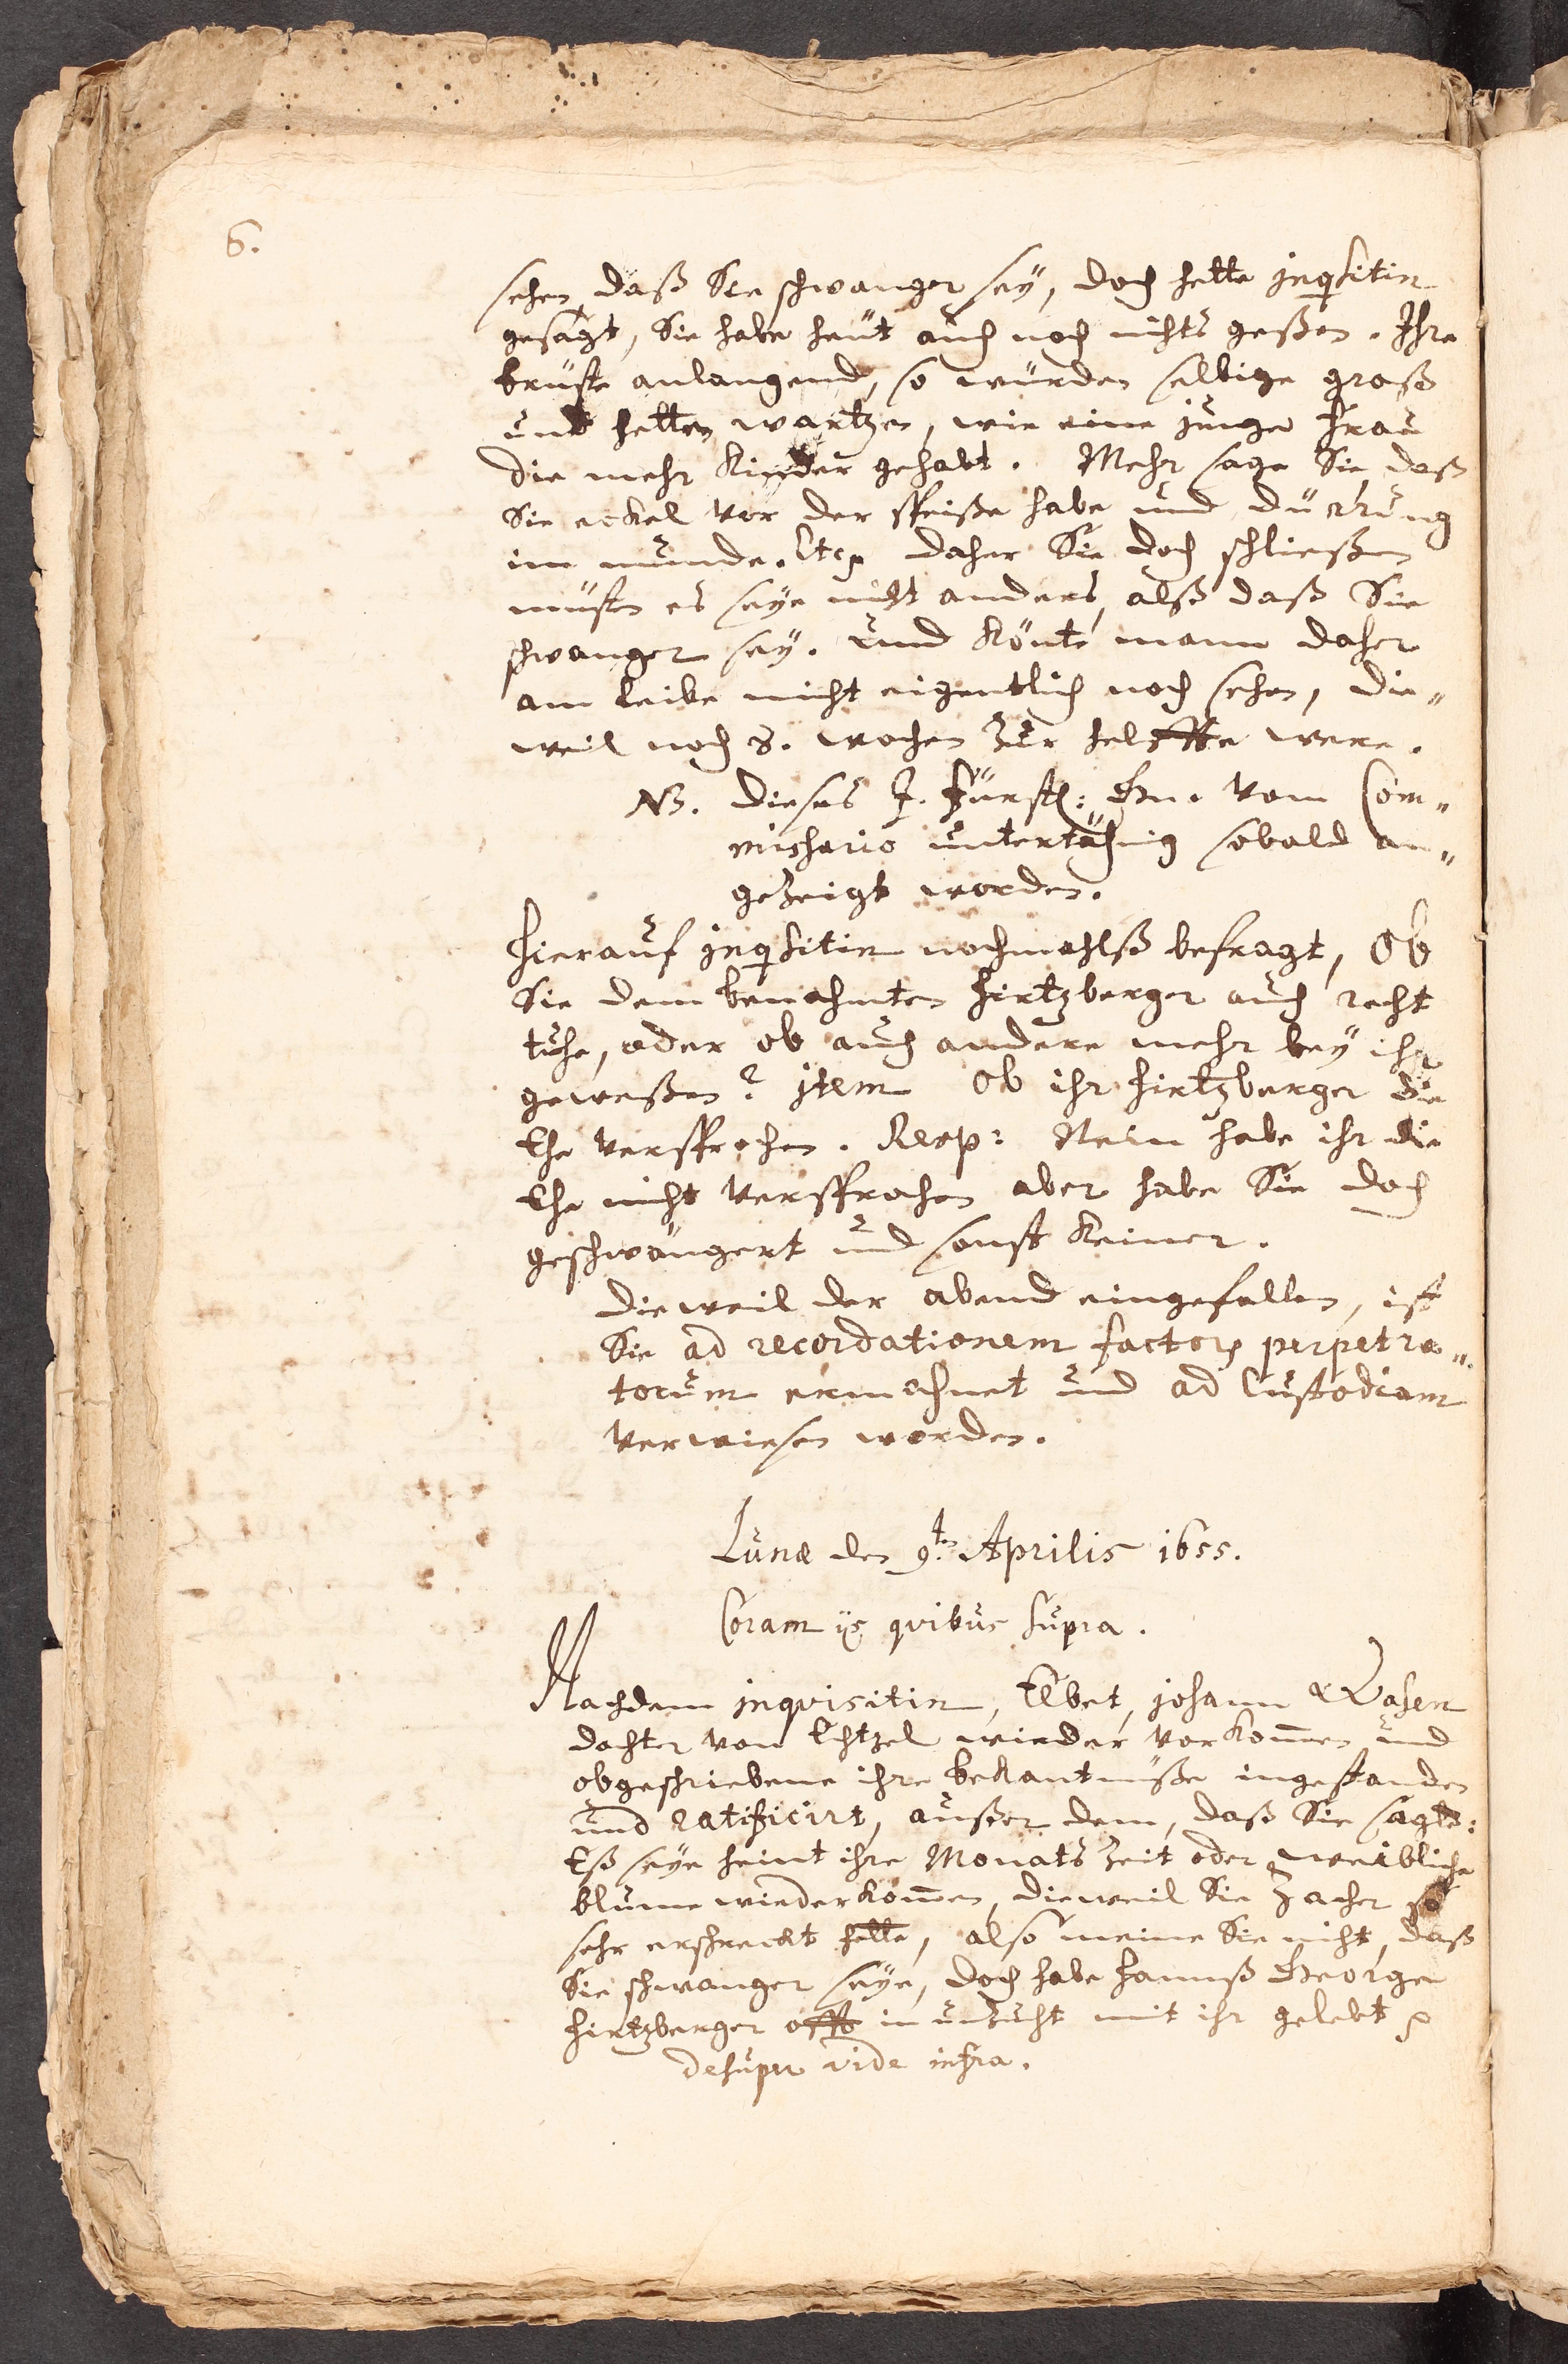 6.
sehen, daß Sie schwanger seÿ, doch hette jnq̃sitin
gesagt, Sie habe heut auch noch nichts geßen. Ihre
brüste anlangend, so würden selbige groß
und hetten wartzen, wie eine junge Frau
die mehr Kinder gehabt. Mehr sage Sie, daß
Sie eckel vor der speiße habe und dürrung
im munde. Etc. daher Sie doch schließen
müsten es seÿe nicht anders, alß daß Sie
schwanger seÿ. und Könte mann daher
am leibe nicht eigentlich noch sehen, die„
weil noch 8. wochen Zur helffte were.
NB. dieses J. Fürstl: Gn. vom Com„
mishario untertähnig sobald an„
geZeigt worden.
Hierauf jnq̃sitin nochmahlß befragt, Ob
Sie dem benahmten Hirtzberger auch recht
tuhe, oder ob auch andere mehr beÿ ihr
geweßen? jtem Ob ihr Hirtzberger die
Ehe versprochen. Resp: Nein habe ihr die
Ehe nicht versprochen aber habe Sie doch
geschwängert und sonst Keiner.
dieweil der abend eingefallen, ist
Sie ad recordationem factorũ perpetra„
torum ermahnet und ad Custodiam
verwiesen worden.
Lunæ den 9.ten Aprilis 1655.
Coram ijs qvibus supra.
Nachdem jnqvisitin, Elbet, johann Wasen
dochter von Echtzel wieder vorkom̃en und
obgeschriebene ihre bekantnüße ingestanden
und ratificirt, außer dem, daß Sie sagte:
Eß seÿe heint ihre Monats Zeit oder weibliche
blume wiederkom̃en, dieweil Sie Zacher so
sehr erschreckt hette, also meine Sie nicht, daß
Sie schwanger seÿe, doch habe Hannß George
Hirtzberger offt in unZucht mit ihr gelebt
desuper vide infra.